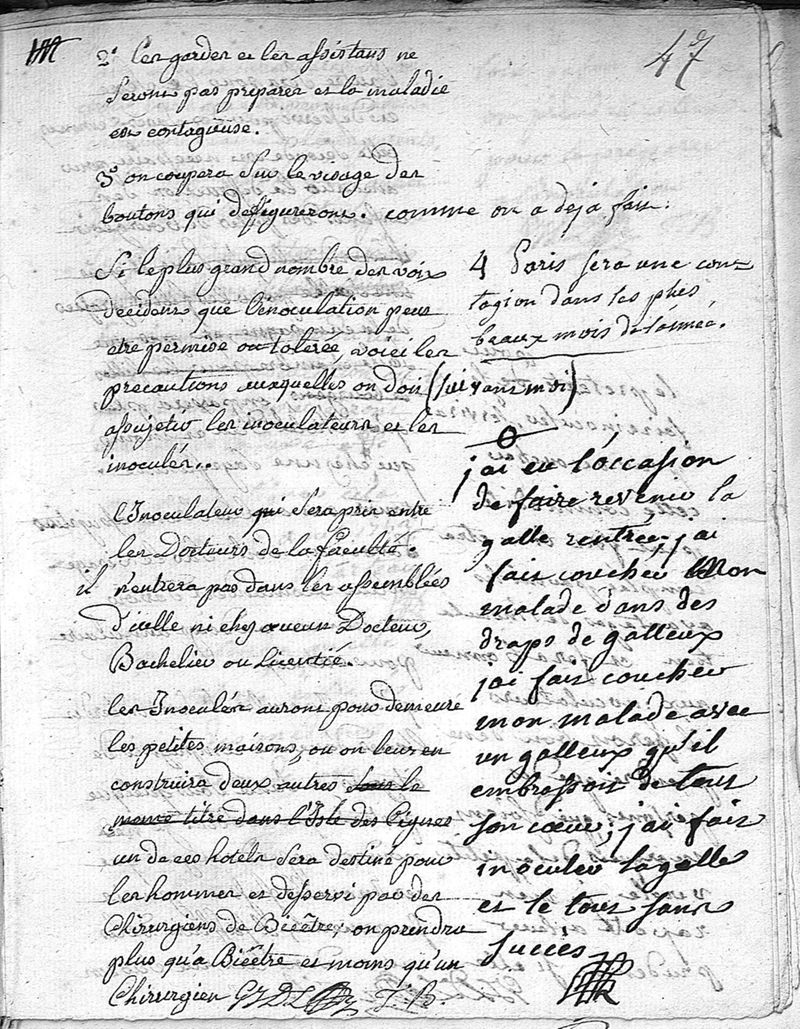 47
2° Les gardes et les assistans ne
seront pas préparés et la maladie
est contagieuse.
3° on coupera sur le visage des
boutons qui défigureront. comme on a déja fait.
Si le plus grand nombre des voix
decident que l'énoculation peut
etre permise ou tolérée, voici les
precautions auxquelles on doit (suivant moi)
assujetir les inoculateurs et les
inoculés..
l'Inoculateur qui sera pris entre
les Docteurs de la faculté.
il n'entrera pas dans les assemblées
d'icelle ni chez aucun Docteur,
Bachelier ou Licentié.
les Inoculés auront pour demeure
les petites maisons, ou on leur en
construira deux autres sous le
meme titre dans l'Isle des Cignes
un de ces hotels sera destiné pour
les hommes et desservi par des
Chirurgiens de Bicêtre; on prendra
plus qu'a Bicêtre et moins qu'un
Chirurgien
4 Paris sera une con=
tagion dans les plus
beaux mois de l'année.
j'ai eu l'occasion
de faire revenir la
galle rentrée; j'ai
fait coucher Mon
malade dans des
draps de galleux
j'ai fait coucher
mon malade avec
un galleux qu'il
embrassoit de tout
son coeur; j'ai fait
inoculer la galle
et le tout sans
succès